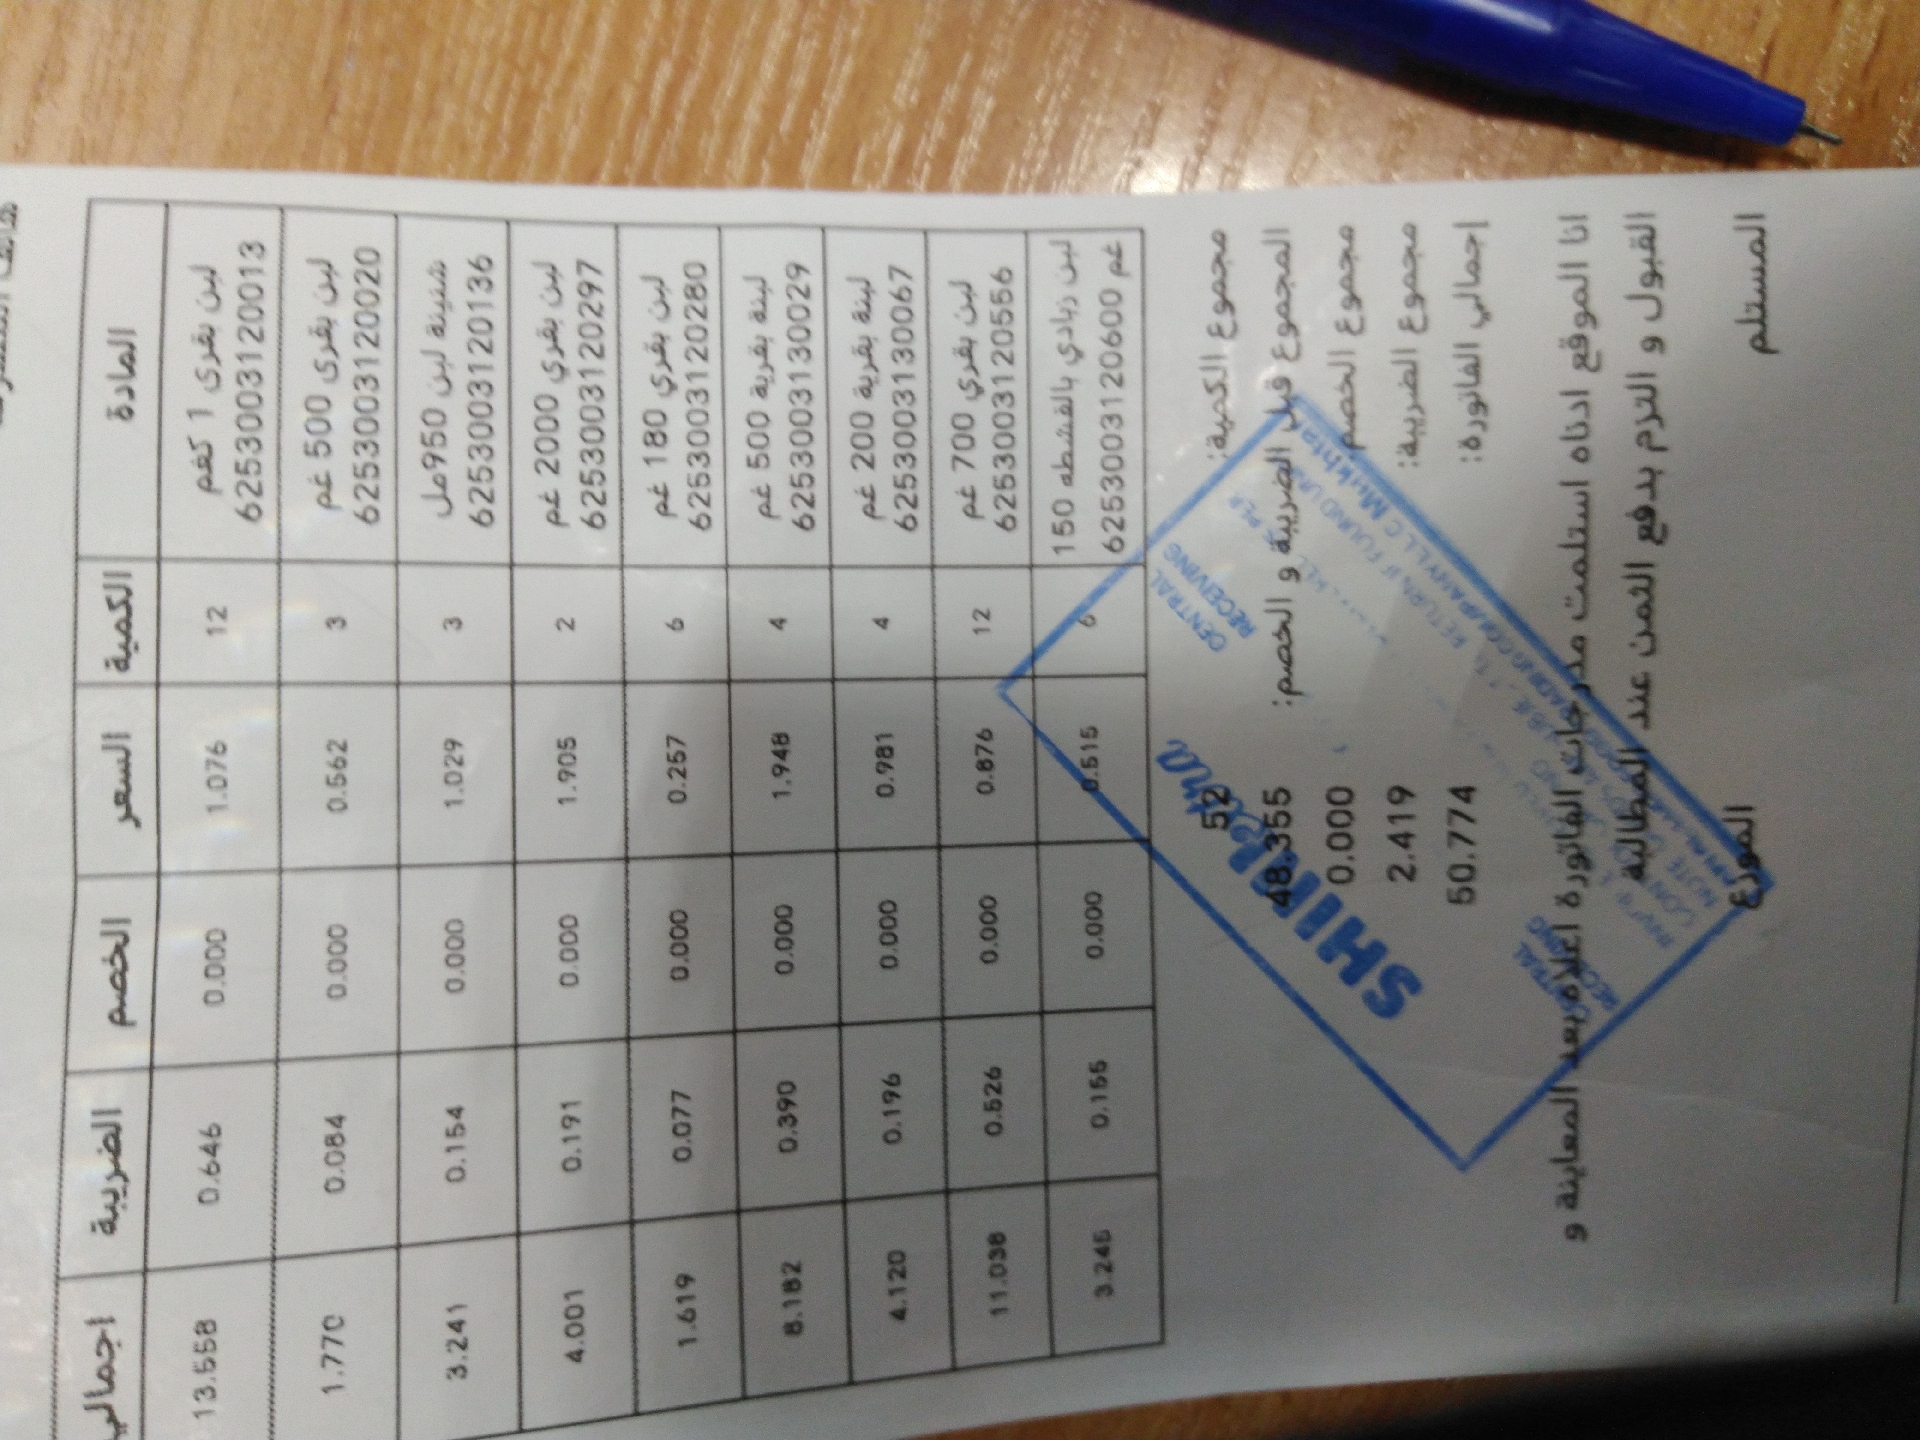 المادة الكمية السعر الخصم الضريبة اجمالي
لبن بقرى 1 كغم 12 1.076 0.000 0.646 13.558
6253003120013
لبن بقرى 500 غم 3 0.562 0.000 0.084 1.770
6253003120020
شنينة لبن 950مل 3 1.029 0.000 0.154 3.241
6253003120136
لبن بقري 2000 غم 2 1.905 0.000 0.191 4.001
6253003120297
لبن بقري 180 غم 6 0.257 0.000 0.077 1.619
6253003120280
لبنة بقرية 500 غم 4 1.948 0.000 0.390 8.182
6253003130029
لبنة بقرية 200 غم 4 0.981 0.000 0.196 4.120
6253003130067
لبن بقري 700 غم 12 0.876 0.000 0.526 11.038
6253003120556
لبن زبادي بالقشطه 150 6 0.515 0.000 0.155 3.245
غم 6253003120600
مجموع الكمية: 52
المجموع قبل الضريبة و الخصم: 48.355
مجموع الخصم 0.000
مجموع الضريبة: 2.419
اجمالي الفاتورة: 50.774
انا الموقع ادناه استلمت مدرجات الفاتورة اعلاه بعد المعاينة و
القبول و التزم بدفع الثمن عند المطالبة
المستلم الموزع
CENTRAL
RECEIVING
RETURN, IF FOUND
TRADING COMPANY L L C Mukhtar
NOTE
CENTRAL